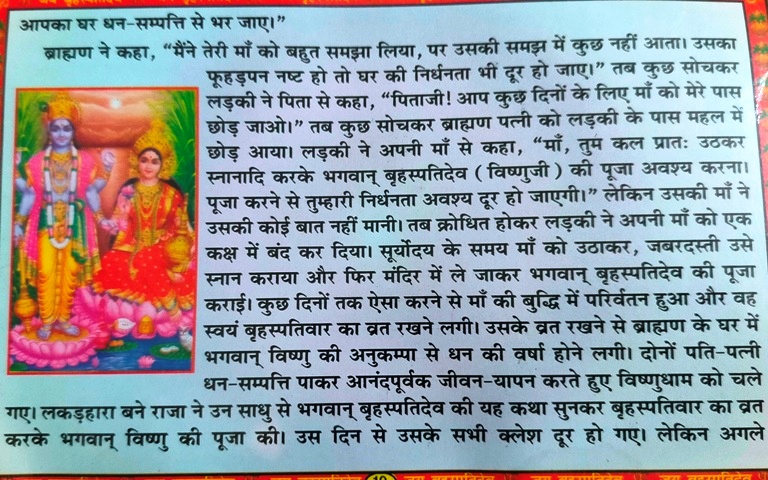 आपका घर धन-सम्पत्ति से भर जाए।”
ब्राह्मण ने कहा, “मैंने तेरी माँ को बहुत समझा लिया, पर उसकी समझ में कुछ नहीं आता। उसका
फूहड़पन नष्ट हो तो घर की निर्धनता भी दूर हो जाए।” तब कुछ सोचकर
लड़की ने पिता से कहा, “पिताजी! आप कुछ दिनों के लिए माँ को मेरे पास
छोड़ जाओ।” तब कुछ सोचकर ब्राह्मण पत्नी को लड़की के पास महल में
छोड़ आया। लड़की ने अपनी माँ से कहा, “माँ, तुम कल प्रातः उठकर
स्नानादि करके भगवान् बृहस्पतिदेव ( विष्णुजी ) की पूजा अवश्य करना।
पूजा करने से तुम्हारी निर्धनता अवश्य दूर हो जाएगी।” लेकिन उसकी माँ ने
उसकी कोई बात नहीं मानी। तब क्रोधित होकर लड़की ने अपनी माँ को एक
कक्ष में बंद कर दिया। सूर्योदय के समय माँ को उठाकर, जबरदस्ती उसे
स्नान कराया और फिर मंदिर में ले जाकर भगवान् बृहस्पतिदेव की पूजा
कराई। कुछ दिनों तक ऐसा करने से माँ की बुद्धि में परिवर्तन हुआ और वह
स्वयं बृहस्पतिवार का व्रत रखने लगी। उसके व्रत रखने से ब्राह्मण के घर में
भगवान् विष्णु की अनुकम्पा से धन की वर्षा होने लगी। दोनों पति-पत्नी
धन-सम्पत्ति पाकर आनंदपूर्वक जीवन-यापन करते हुए विष्णुधाम को चले
गए। लकड़हारा बने राजा ने उन साधु से भगवान् बृहस्पतिदेव की यह कथा सुनकर बृहस्पतिवार का व्रत
करके भगवान् विष्णु की पूजा की। उस दिन से उसके सभी क्लेश दूर हो गए। लेकिन अगले